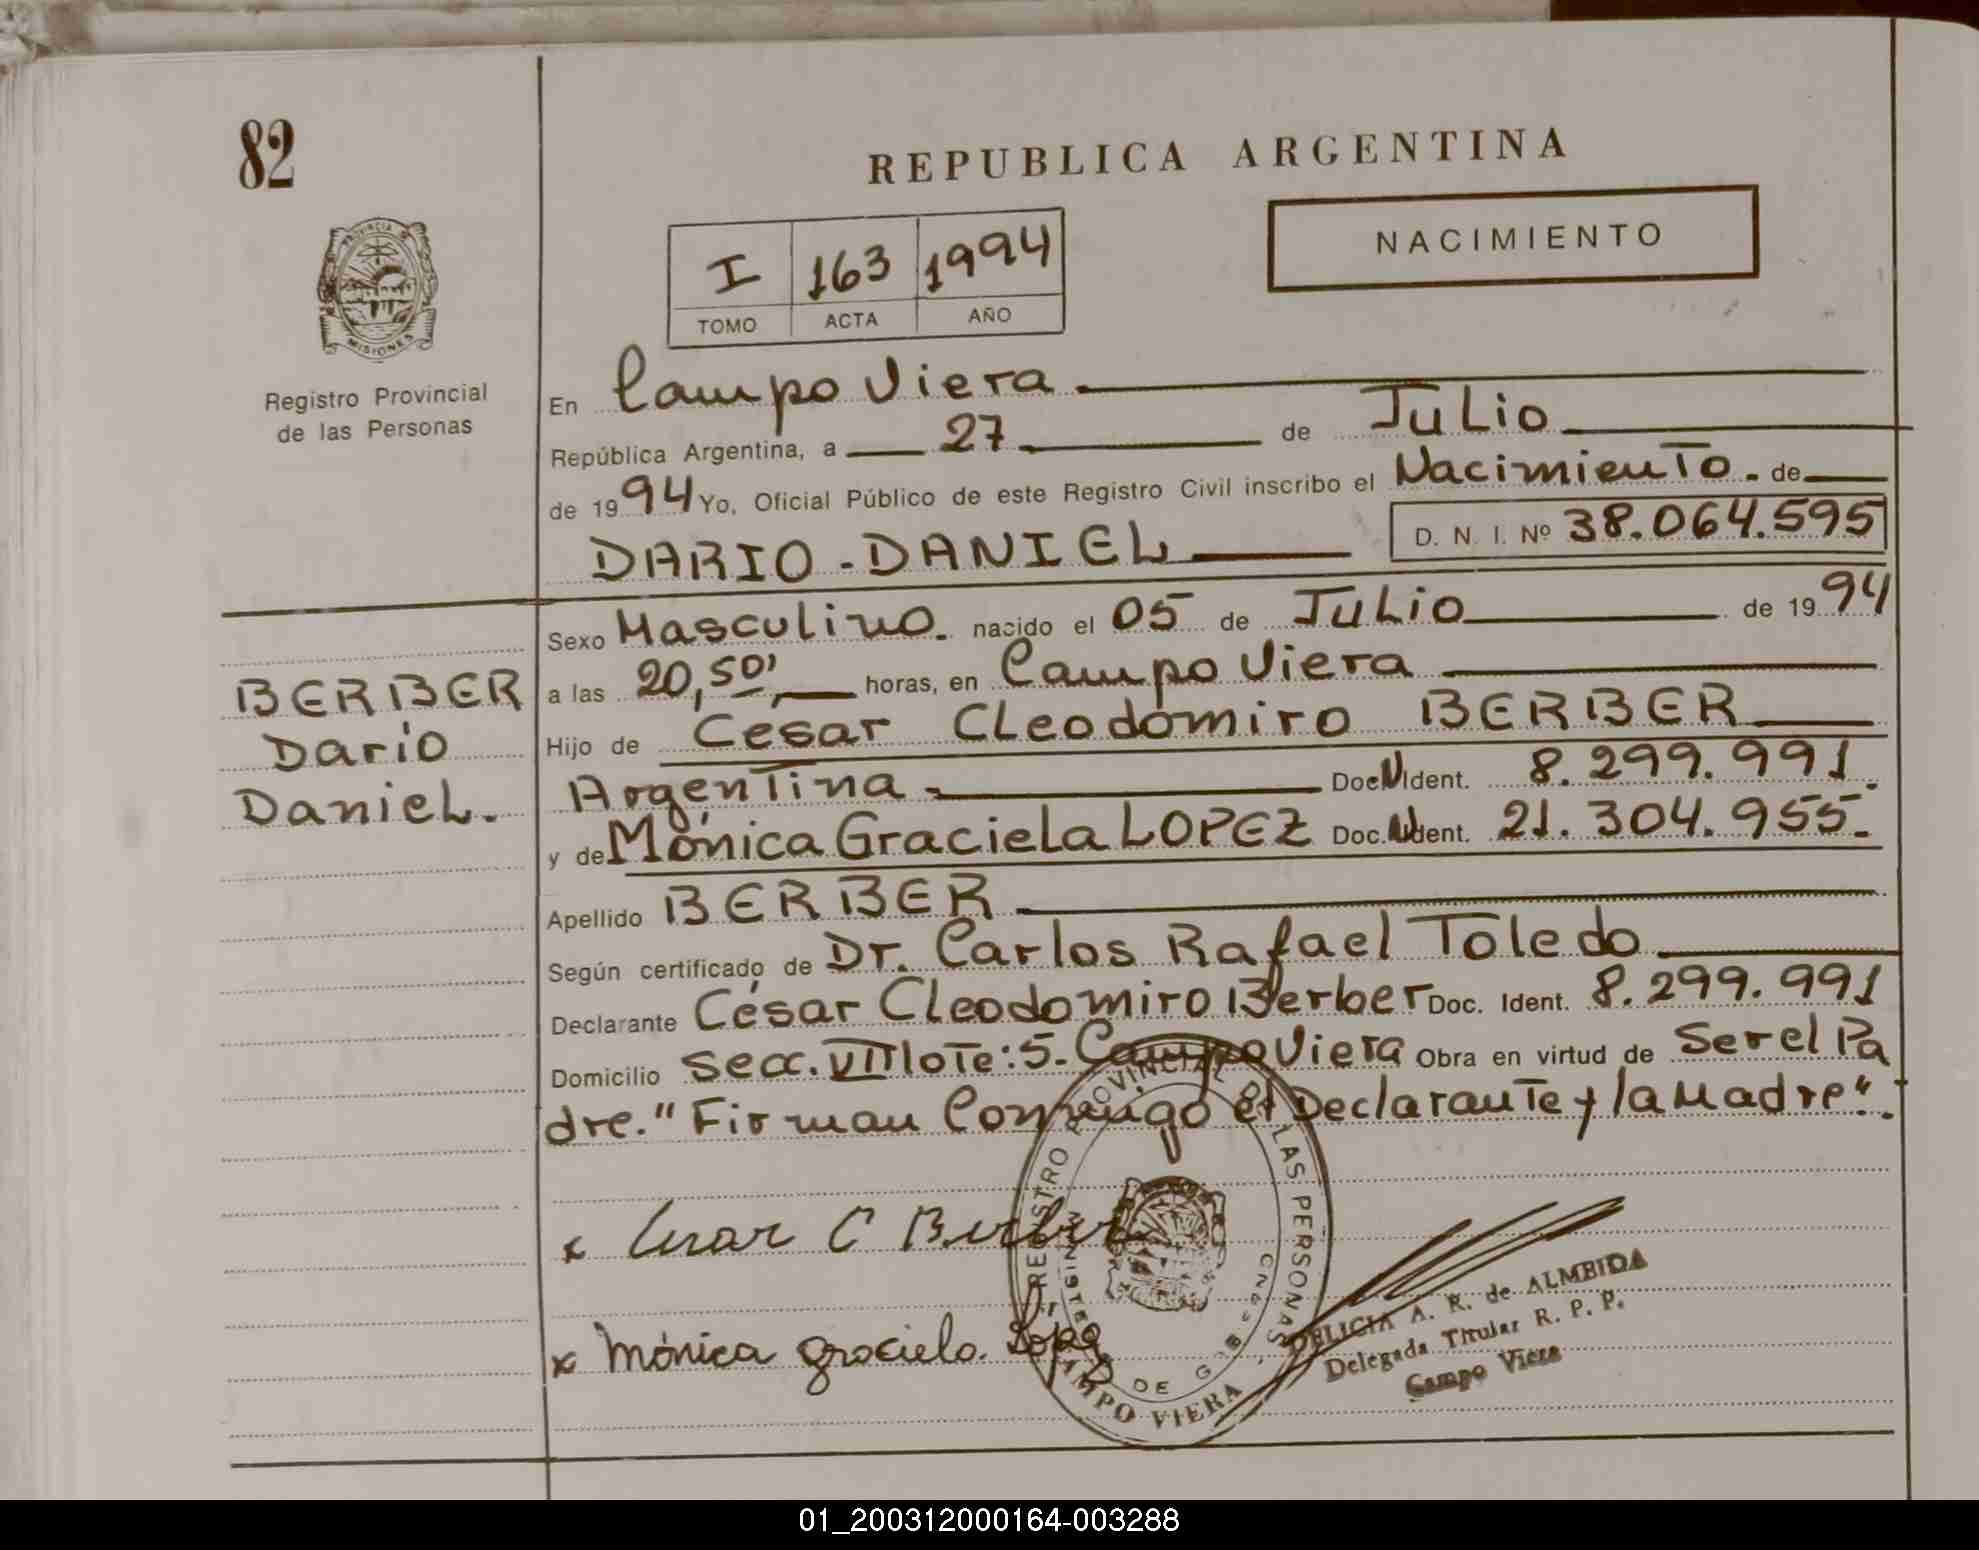 82
REPUBLICA ARGENTINA
NACIMIENTO
I 163 1994
TOMO ACTA AÑO
PROVINCIA DE
MISIONES
Registro Provincial
de las Personas
En Campo Viera
República Argentina, a 27 de Julio
de 1994 Yo, Oficial Público de este Registro Civil inscribo el Nacimiento. de
DARIO-DANIEL D. N. I. Nº 38.064.595
Sexo Masculino. nacido el 05 de Julio de 1994
a las 20,50', horas, en Campo Viera
Hijo de César Cleodomiro BERBER
Argentina Doc. Ident. 8.299.991.
y de Mónica Graciela LOPEZ Doc. Ident. 21.304.955.
Apellido BERBER
Según certificado de Dr. Carlos Rafael Toledo
Declarante César Cleodomiro Berber Doc. Ident. 8.299.991
Domicilio Secc. VIII lote: 5. Campo Viera Obra en virtud de Ser el Pa
dre. "Firman Conmigo el Declarante y la Madre".
BERBER
Dario
Daniel.
x Cesar C Berber
x Mónica graciela. Lopez
REGISTRO PROVINCIAL DE LAS PERSONAS
CAMPO VIERA
DELICIA A. R. de ALMEIDA
Delegada Titular R. P. P.
Campo Viera
01_200312000164-003288